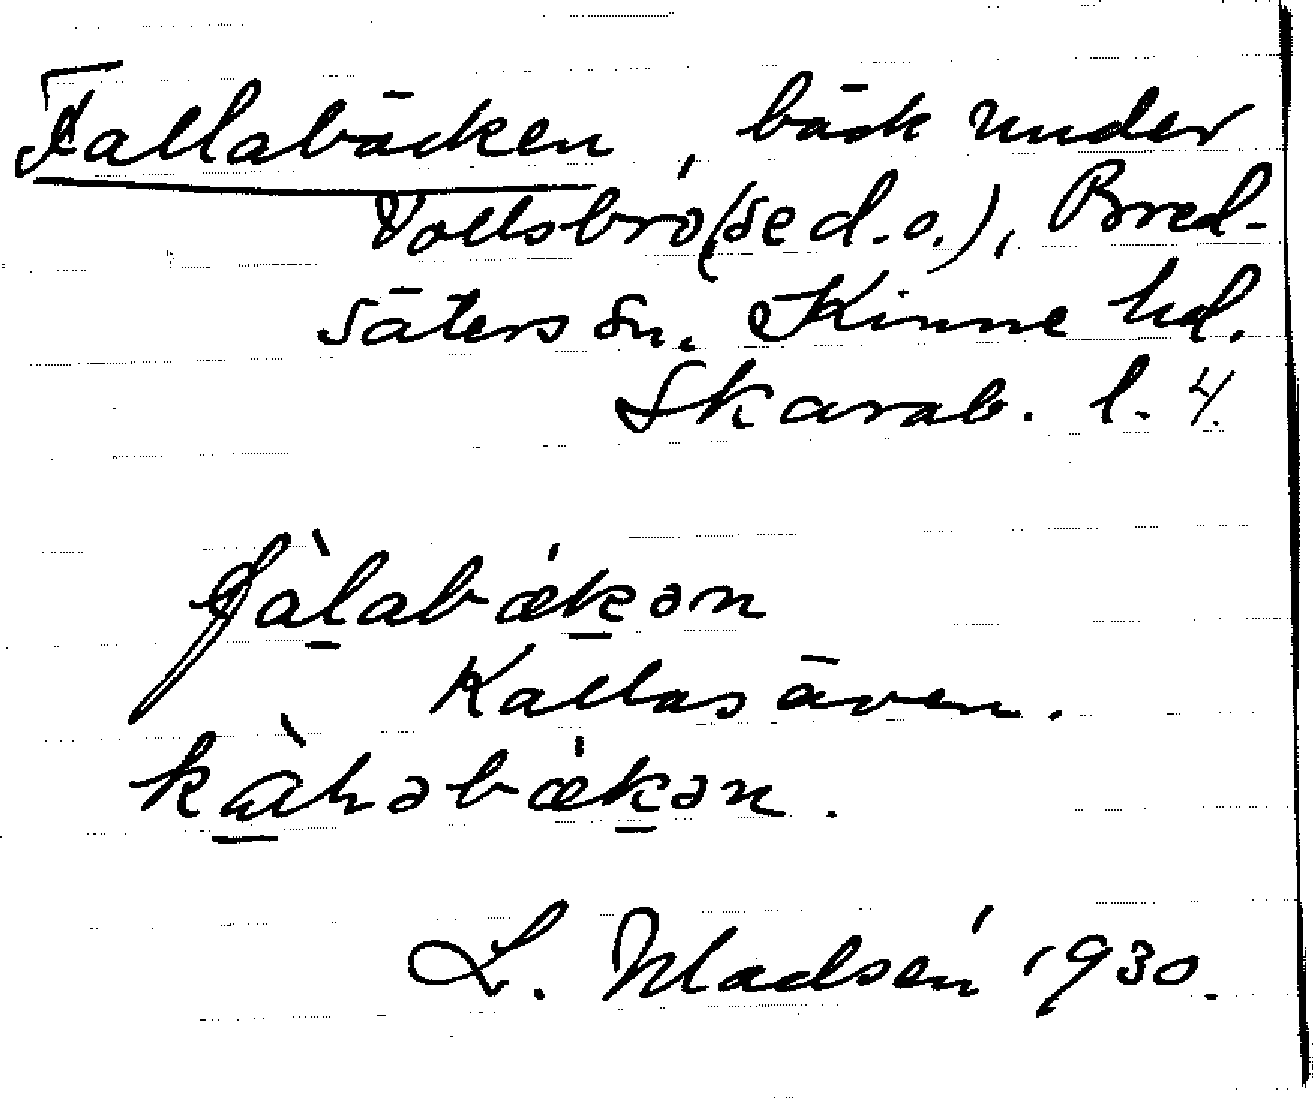 Fallabäcken, bäck under
Vollsbro (se d. o.), Bred-
säters sn. Kinne hd.
Skarab. l. 4.
fàlabǽkən
Kallas även.
kàhəbǽkən.
L. Madsén 1930.